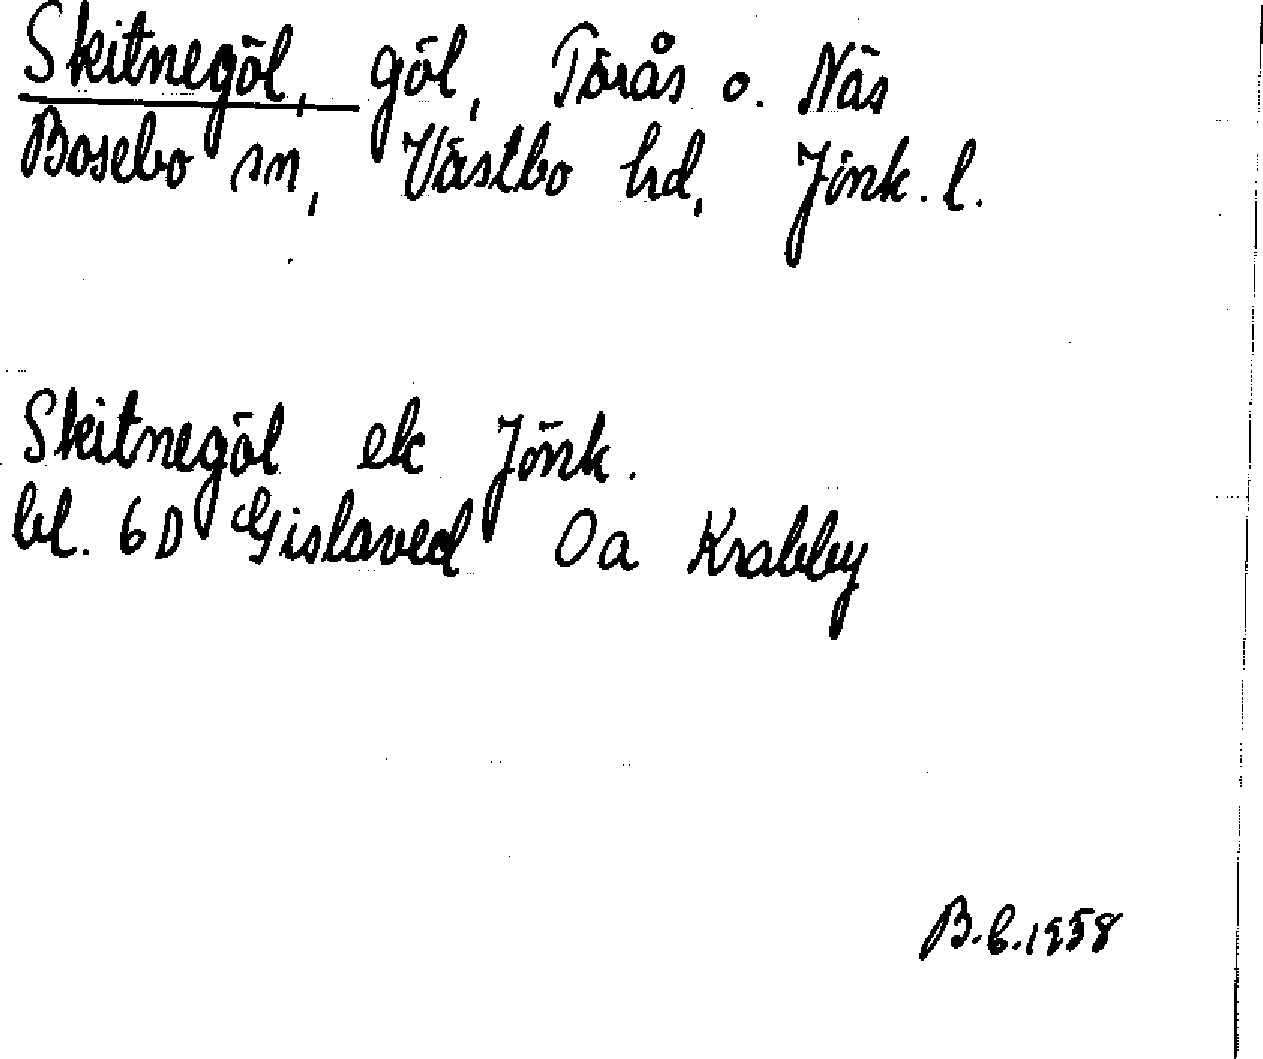 Skitnegöl, göl, Törås o. Näs
Bosebo sn, Västbo hd, Jönk. l.
Skitnegöl ek Jönk.
bl. 6D Gislaved 0a Krabby
B.b.1958